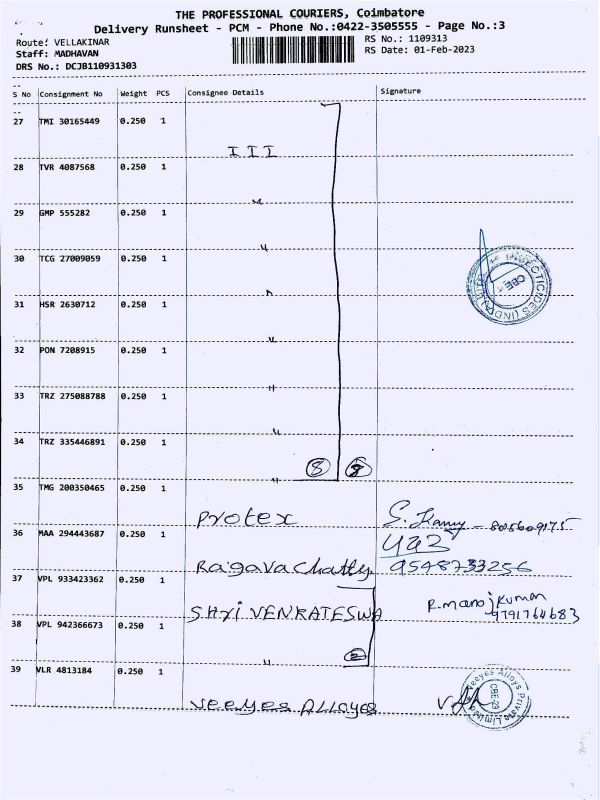 THE PROFESSIONAL COURIERS, Coimbatore
Delivery Runsheet - PCM - Phone No.:0422-3505555 - Page No.:3
Route: VELLAKINAR
RS No.: 1109313
Staff: MADHAVAN
RS Date: 01-Feb-2023
DRS No.: DCJB110931303
S No Consignment No Weight PCS Consignee Details Signature
27 TMI 30165449 0.250 1
III
28 TVR 4087568 0.250 1
29 GMP 555282 0.250 1
30 TCG 27009059 0.250 1
31 HSR 2630712 0.250 1
INSECTICIDES (INDIA)
CBE
32 PON 7208915 0.250 1
33 TRZ 275088788 0.250 1
34 TRZ 335446891 0.250 1
8 8
35 TMG 200350465 0.250 1
Protex
805609175
36 MAA 294443687 0.250 1
Ragava Chatty
9548733256
37 VPL 933423362 0.250 1
Shri VENKATESWA
R.manojkumar
9791764683
38 VPL 942366673 0.250 1
2
39 VLR 4813184 0.250 1
Veeyes ALLoyes
Veeyes Alloys Private Limited
CBE-29